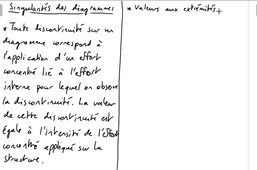 Singularités des diagrammes
* Toute discontinuité sur un
diagramme correspond à
l'application d'un effort
concentré lié à l'effort
interne pour lequel on observe
la discontinuité. La valeur
de cette discontinuité est
égale à l'intensité de l'effort
concentré appliqué sur la
structure.
* Valeurs aux extrémités